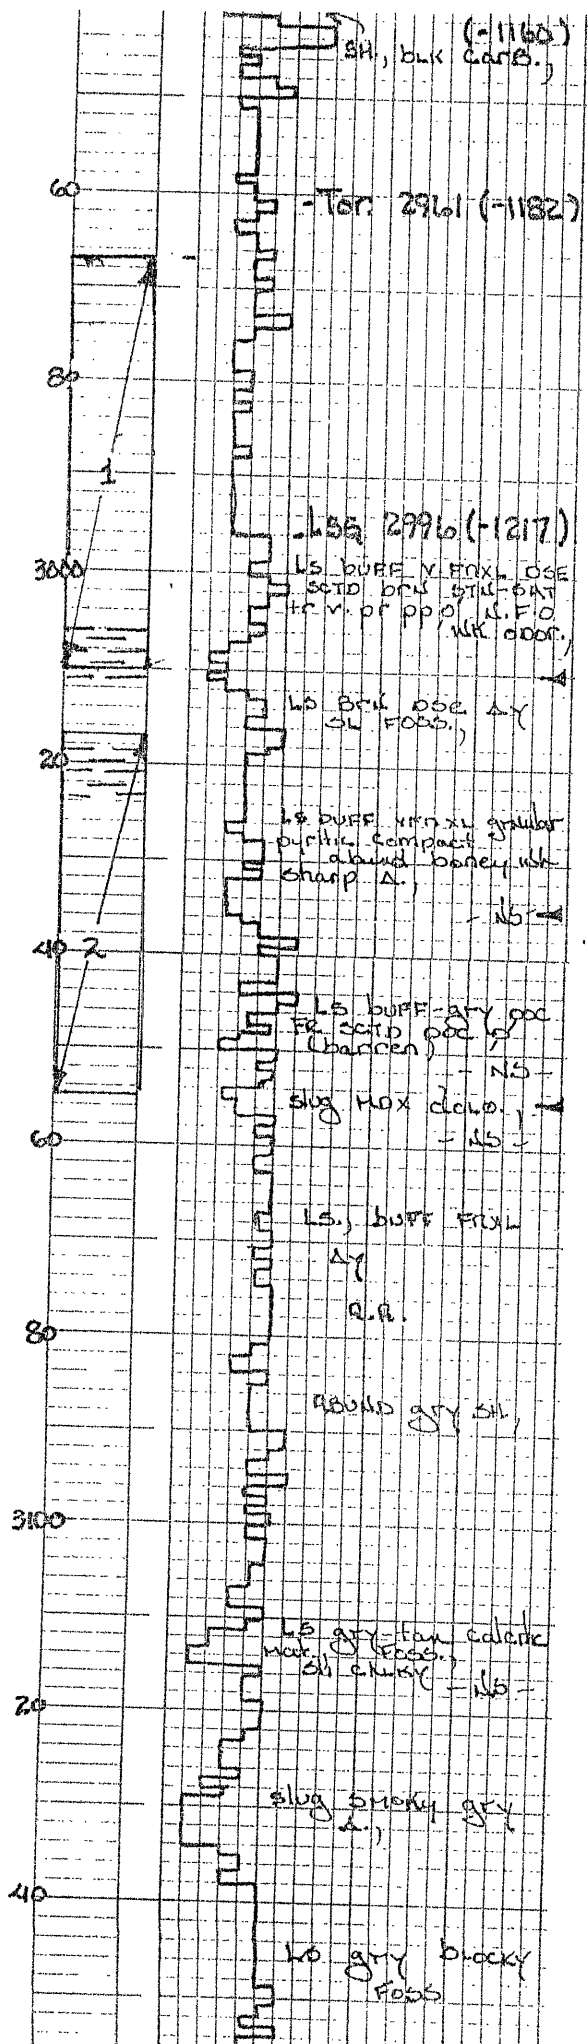 (-1160)
SH., bLK CARB.,
60
-Tor. 2961 (-1182)
80
1
-LSG 2996 (-1217)
3000
LS bUFF V FNXL DSE
SCTD BRN STN-SAT
tr v. pr pp ø, N.F.O
WK ODOR.,
LS BRN DSE Δy
SL FOSS.,
20
LS bUFF VFNXL granular
pyritic compact
abund boney wh
sharp Δ.,
- NS -
40
2
LS bUFF-gry ooc
FR SCTD ooc ø
(barren)
- NS -
slug MDX dolo.,
60
- NS -
LS., bUFF FNXL
Δy
80
A.A.
ABUND gry SH,
3100
LS gry-tan calcitic
Mat., FOSS.,
Sli CHLKY - NS -
20
slug SMOKY gry
Δ.,
40
LS gry blocky
FOSS